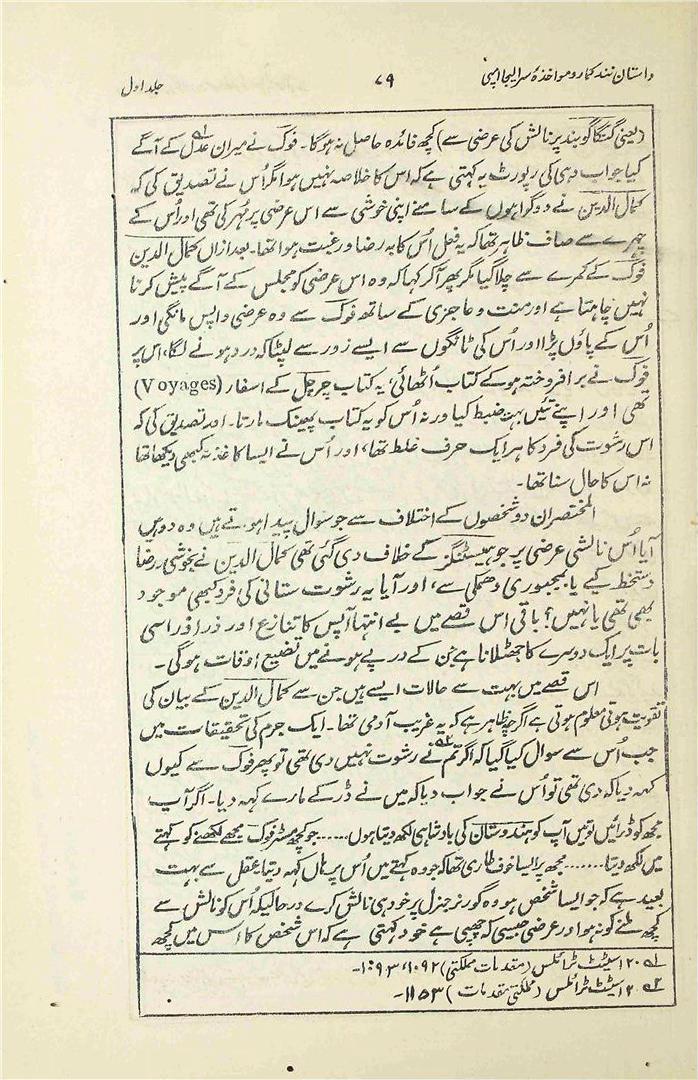 داستان نند کمار و مواخذۂ سر ایلیجا امپی
۷۹
جلد اول
(یعنی گنگا گویند پر نالش کی عرضی سے) کچھ فائدہ حاصل نہ ہوگا۔ فوک نے میران عدل۵۱ کے آگے
کیا جواب دہی کی رپورٹ یہ کہتی ہے کہ اس کا خلاصہ نہیں ہوا مگر اُس نے تصدیق کی کہ
کمال الدین نے دو گواہوں کے سامنے اپنی خوشی سے اس عرضی پر مُہر کی تھی اور اُس کے
چہرے سے صاف ظاہر تھا کہ یہ فعل اُس کا بہ رضا و رغبت ہوا تھا۔ بعد ازاں کمال الدین
فوک کے کمرے سے چلا گیا مگر پھر آکر کہا کہ وہ اس عرضی کو مجلس کے آگے پیش کرنا
نہیں چاہتا ہے اور منت و عاجزی کے ساتھ فوک سے وہ عرضی واپس مانگی اور
اُس کے پاؤں پڑا اور اُس کی ٹانگوں سے ایسے زور سے لپٹا کہ درد ہونے لگا، اس پر
فوک نے برافروختہ ہو کے کتاب اُٹھائی، یہ کتاب چرچل کے اسفار (Voyages)
تھی اور اپنے تئیں بہت ضبط کیا ورنہ اُس کو یہ کتاب پھینک مارتا۔ اور تصدیق کی کہ
اس رشوت کی فرد کا ہر ایک حرف غلط تھا، اور اُس نے ایسا کاغذ نہ کبھی دیکھا تھا
نہ اس کا حال سنا تھا۔
المختصر ان دو شخصوں کے اختلاف سے جو سوال پیدا ہوتے ہیں وہ دو ہیں
آیا اُس نالشی عرضی پر جو ہیسٹنگز کے خلاف دی گئی تھی کمال الدین نے بخوشی رضا
دستخط کیے یا بمجبوری دھمکی سے، اور آیا یہ رشوت ستانی کی فرد کبھی موجود
بھی تھی یا نہیں؟ باقی اس قصے میں بے انتہا آپس کا تنازع اور ذرا ذرا سی
بات پر ایک دوسرے کا جھٹلانا ہے جن کے درپے ہونے میں تضیع اوقات ہوگی۔
اس قصے میں بہت سے حالات ایسے ہیں جن سے کمال الدین کے بیان کی
تقویت ہوتی معلوم ہوتی ہے اگرچہ ظاہر ہے کہ یہ غریب آدمی تھا۔ ایک جرم کی تحقیقات میں
جب اُس سے سوال کیا گیا کہ اگر تم۵۲ نے رشوت نہیں دی تھی تو پھر فوک سے کیوں
کہہ دیا کہ دی تھی تو اُس نے جواب دیا کہ میں نے ڈر کے مارے کہہ دیا۔ اگر آپ
مجھ کو ڈرائیں تو میں آپ کو ہندوستان کی بادشاہی لکھ دیتا ہوں...... جو کچھ مسٹر فوک مجھے لکھنے کو کہتے
میں لکھ دیتا....... مجھ پر ایسا خوف طاری تھا کہ جو وہ کہتے میں اُس پر ہاں کہہ دیتا عقل سے بہت
بعید ہے کہ جو ایسا شخص ہو وہ گورنر جنرل پر خود ہی نالش کرے درحالیکہ اُس کو نالش سے
کچھ ملنے کو نہ ہو اور عرضی جیسی کہ چھپی ہے خود کہتی ہے کہ اس شخص کا اس میں کچھ
۵۱ ۲۰ اسٹیٹ ٹرائلس (مقدمات مملکتی) ۱۰۹۲، ۱۰۹۳۔
۵۲ ۲۰ اسٹیٹ ٹرائلس (مملکتی مقدمات) ۱۱۵۳۔